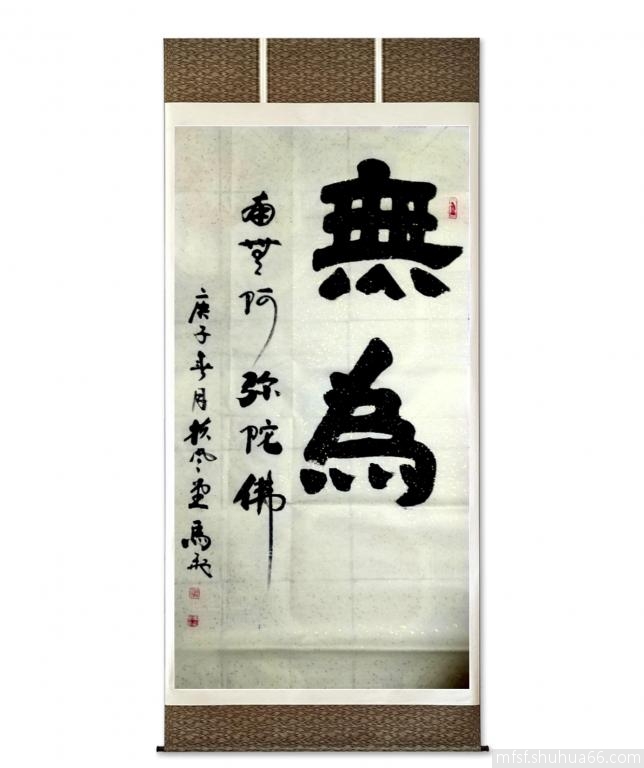 無為
南無阿弥陀佛
庚子春月於風堂馬飛
mfsf.shuhua66.com